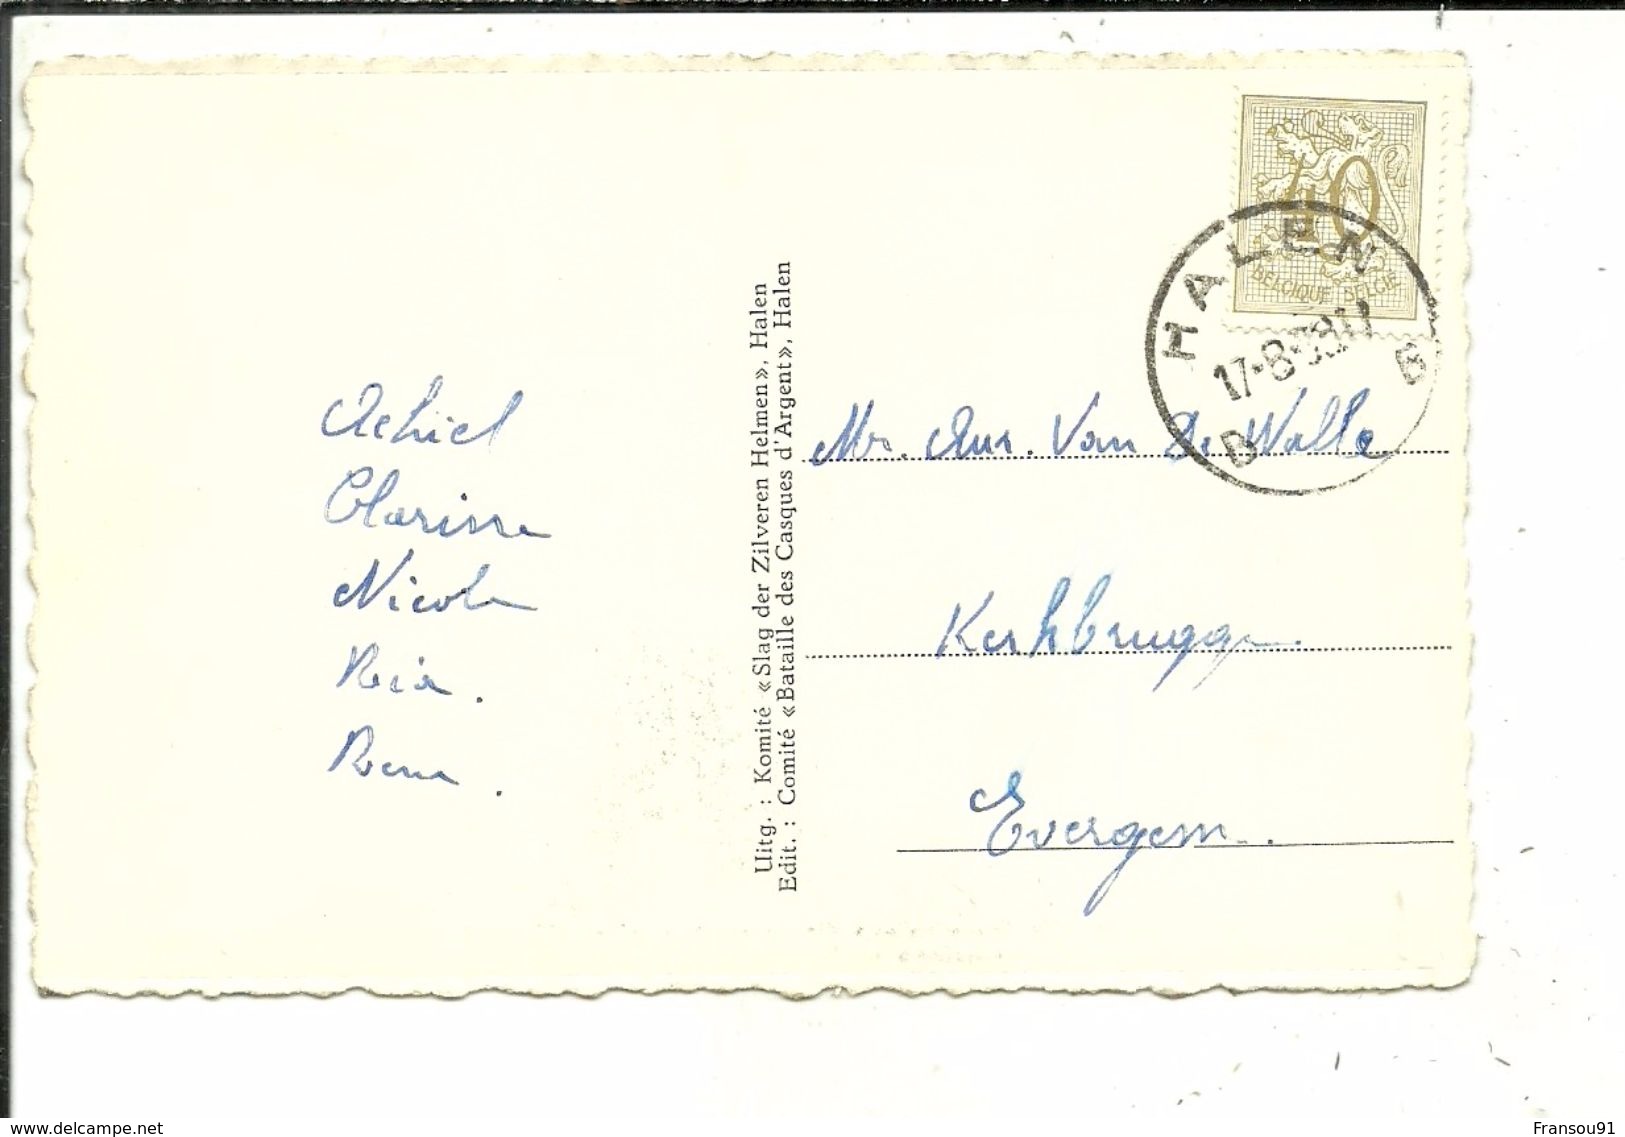 Achiel
Clarisse
Nicole
Ria.
Rene.
Uitg. : Komité «Slag der Zilveren Helmen», Halen
Edit. : Comité «Bataille des Casques d'Argent», Halen
40
BELGIQUE BELGIË
HALEN
17-8-
B B
Mr. Aur. Van De Walle
Kerkbrugge.
Evergem.
www.delcampe.net
Fransou91